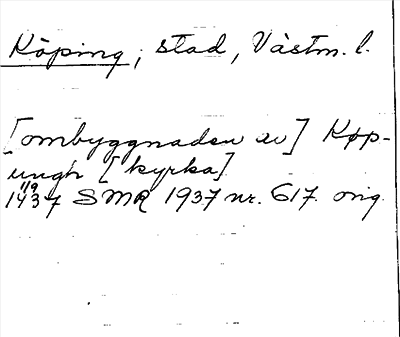 Köping, stad, Västm. l.
[ombyggnaden av] Køp-
ungh [kyrka]
11/9
1437 SMR 1937 nr. 617. orig.